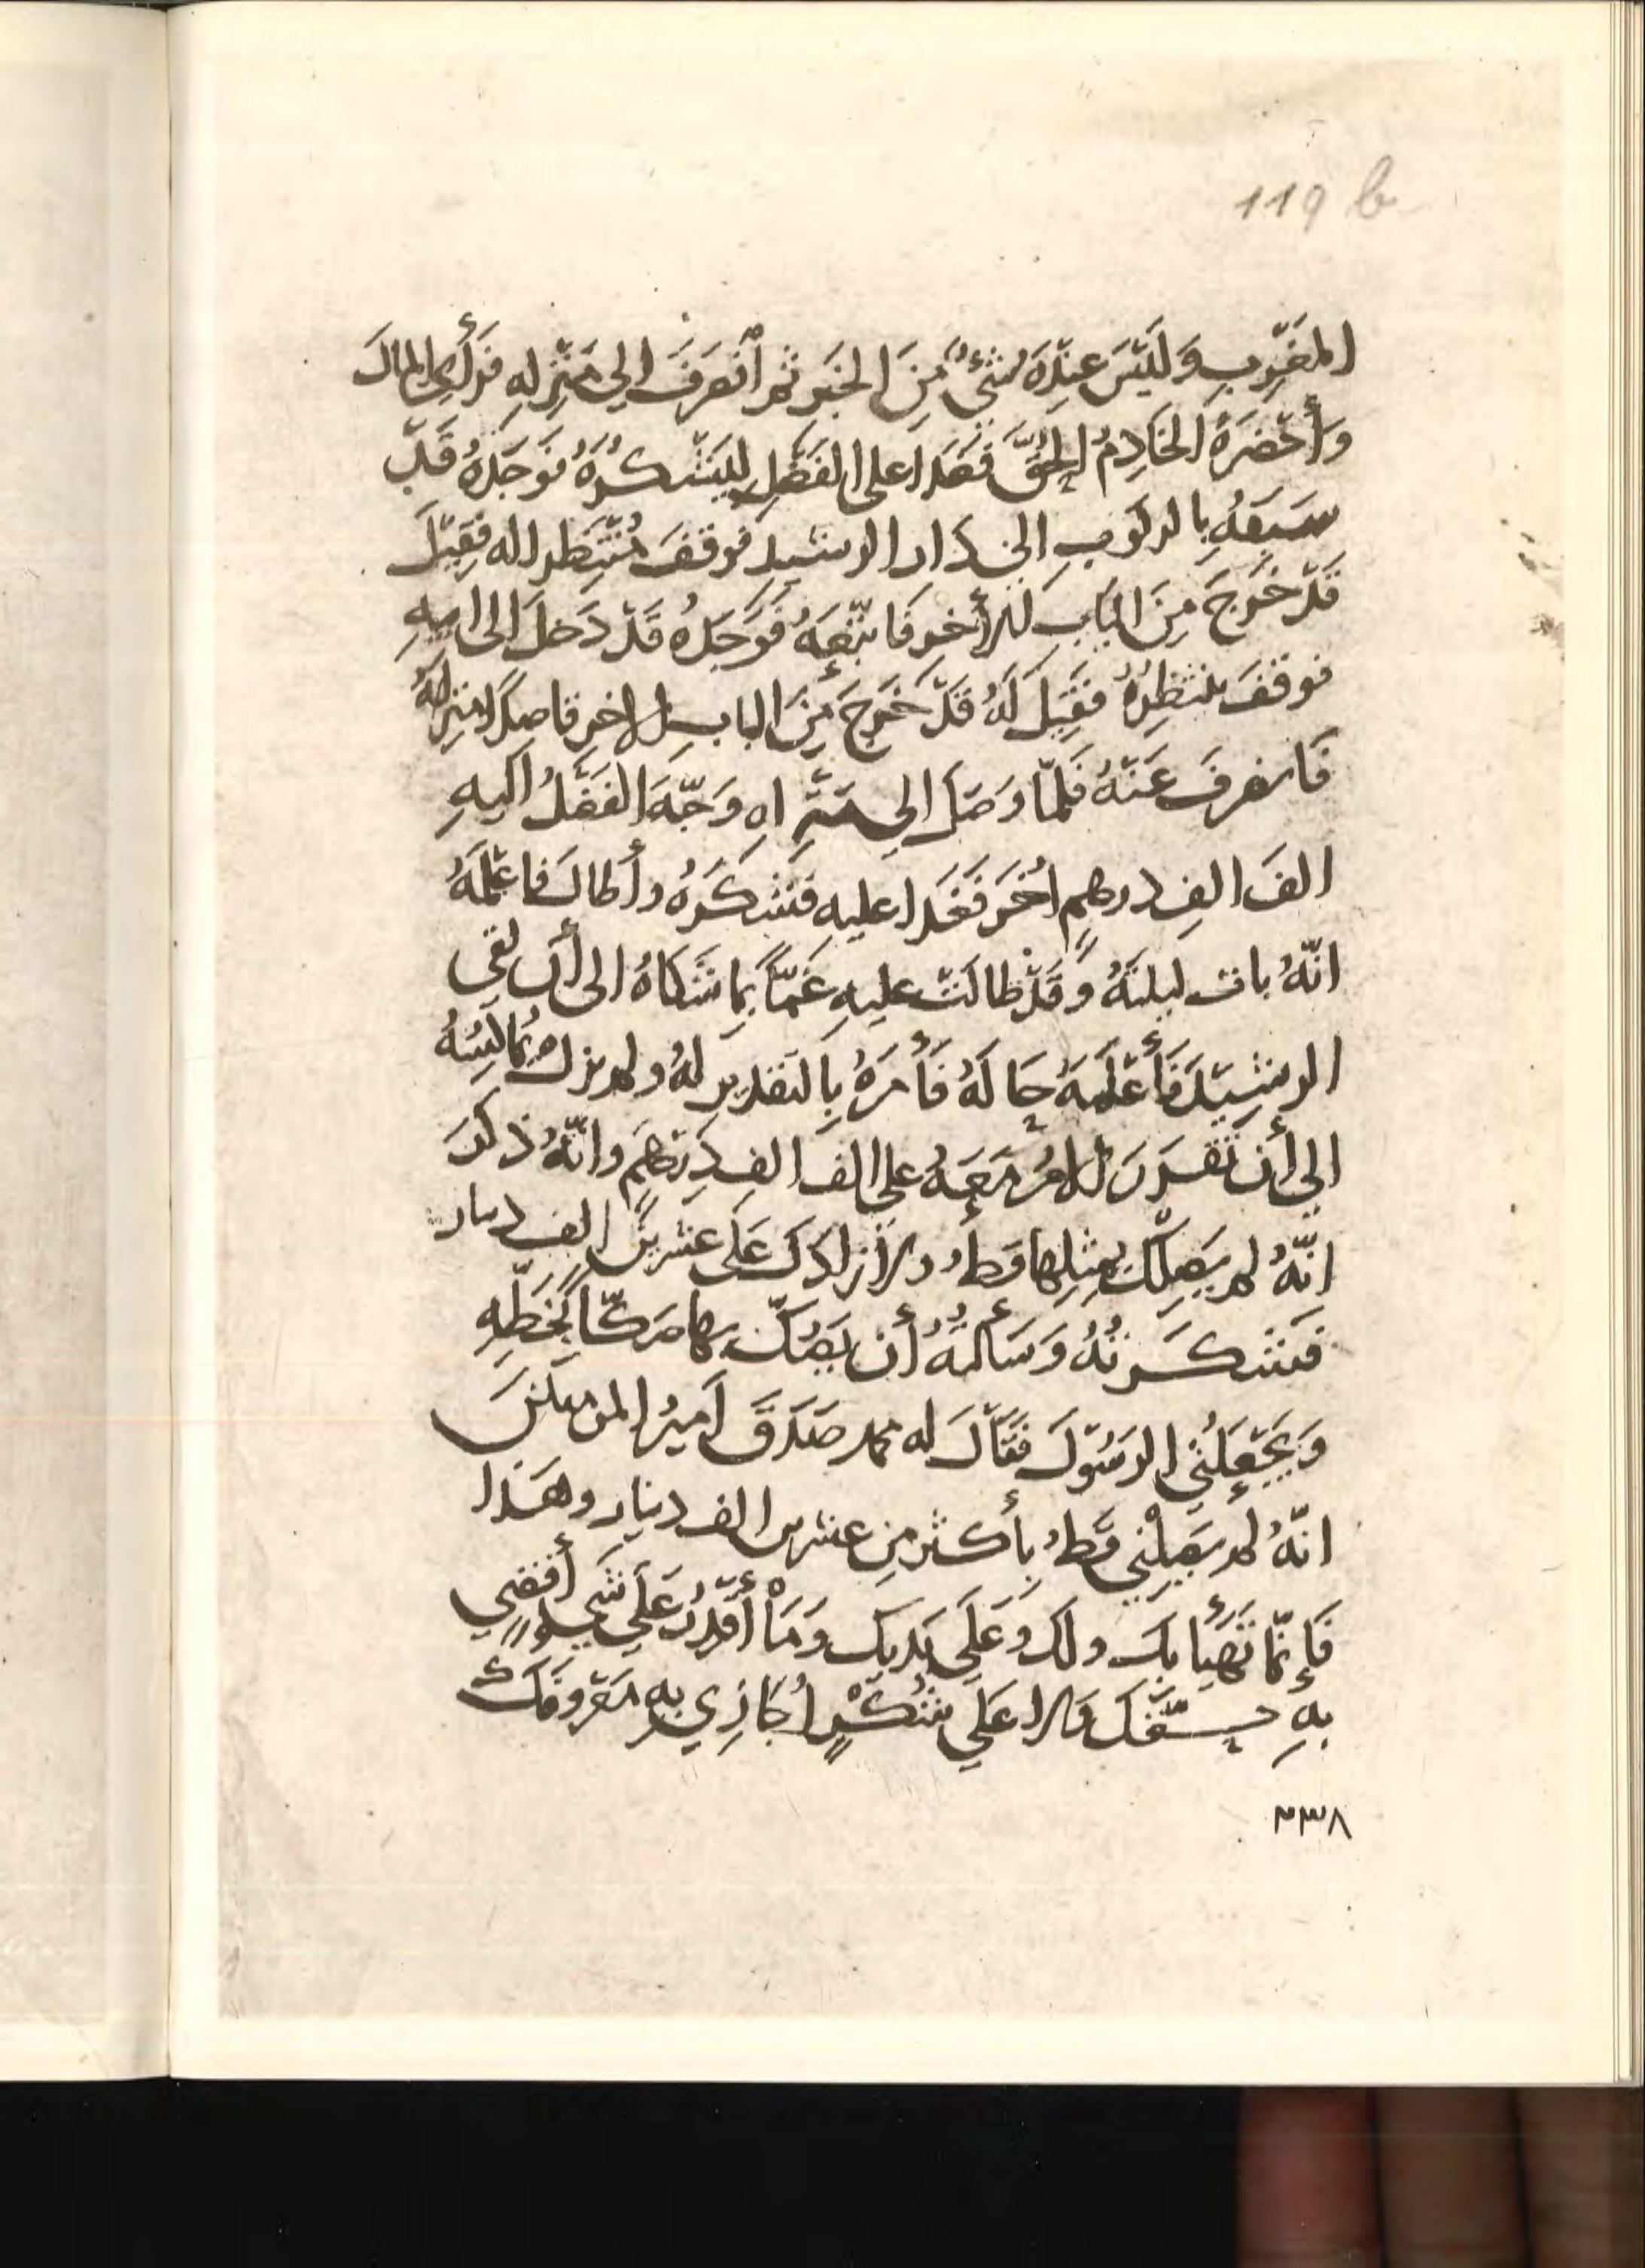 119 b
المَغْرِبِ وَلَيْسَ عِنْدَهُ شَيْءٌ مِنَ الخَبَرِ ثم اْنْصَرَفَ الي مَنْزِلِهِ فَرَأَى المالَ
وَأَحْضَرَهُ الخَادِمُ الحُقَّ فَغَدا على الفَضْلِ لِيَشْكُرَهُ فَوَجَدَهُ قَدْ
سَبَقَهُ بِالركوبِ الى دَار الرشيدِ فوقفَ مُنْتَظِرا له فَقِيْلَ
قَدْ خَرَجَ مِنَ البَابِ الأخرِ فَاتْبَعَهُ فَوَجَدَهُ قَدْ دَخلَ الى ابيهِ
فوقفَ ينتظِرُهُ فَقِيْلَ لَهُ قَدْ خَرجَ مِنَ البابِ الاخرِ قاصدًا منزلَهُ
فَانصرفَ عَنْهُ فَلَمّا وَصَلَ الي مَنْزِله وَجّهَ الفَضْلُ اليهِ
الفَ الفِ درهمٍ اُخْرَ فَغَدا عليهِ فشَكَرَهُ وأطالَ فاعْلَمَهُ
انّهُ بات ليلتَهُ وَقَدْ طالَتْ عليهِ غَمًّا بِمَا شَكَاهُ الى أن لقي
الرشيْدَ فَأَعْلَمَهُ حَالَهُ فَأَمَرَهُ بِالتقدير لهُ ولم يزل يُمَاكِسُهُ
الي أن تَقَرَّرَ الامرُ مَعَهُ على الف الفِ دِرْهَمٍ وانّهُ ذكرَ
انّهُ لم يَصِلْكَ بِمِثْلِها قَطُّ ولا زادَكَ عَلَى عشرينَ الف دينار
فشكَرتُهُ وَسَألتُهُ أن يَصُكّ بها صَكّاً بِخَطِّهِ
وَيَجْعَلَنِي الرَسُوْلَ فَقَالَ له محمد صَدَقَ اَميرُ المومنينَ
انّهُ لم يَصِلْنِي قَطُّ بأكثر مِن عشرين الف دينار وهَذا
فَإنّما تَهَيأَ بِكَ ولكَ وَعَلَى يَديكَ وَمَا أَقْدِرُ عَلَي شَيءٍ أقضِي
بهِ حَقَّكَ ولا عَلَي شُكْرٍ أُجَازِي بِهِ مَعْروفَكَ
٣٣٨